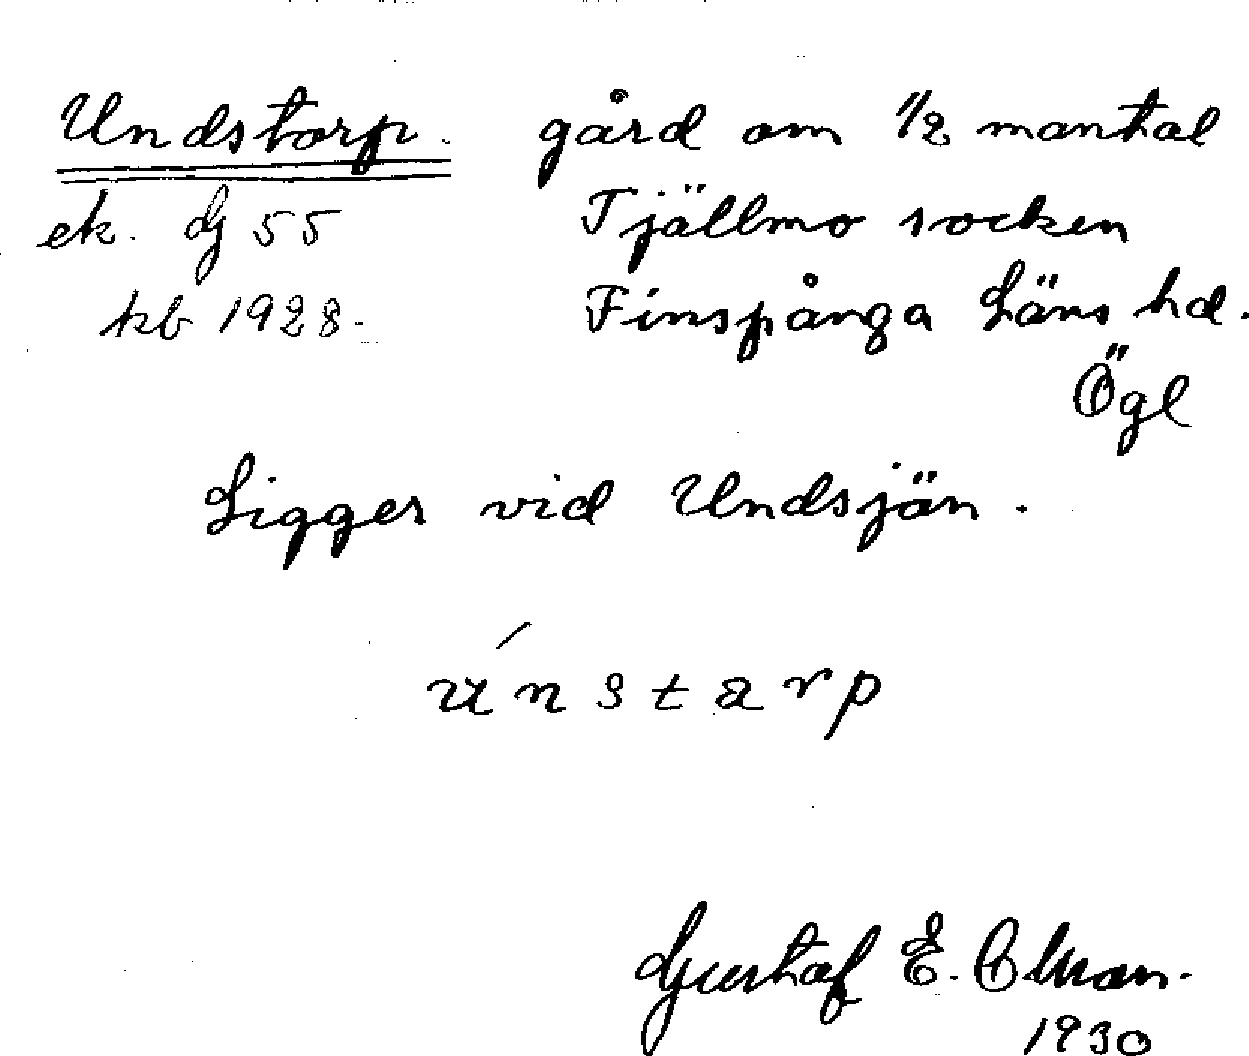 Undstorp. gård om 1/2 mantal
ek. dj 55 Tjällmo socken
kb 1928. Finspånga Läns hd.
Ögl
Ligger vid Undsjön.
únstarp
Gustaf E.
1930